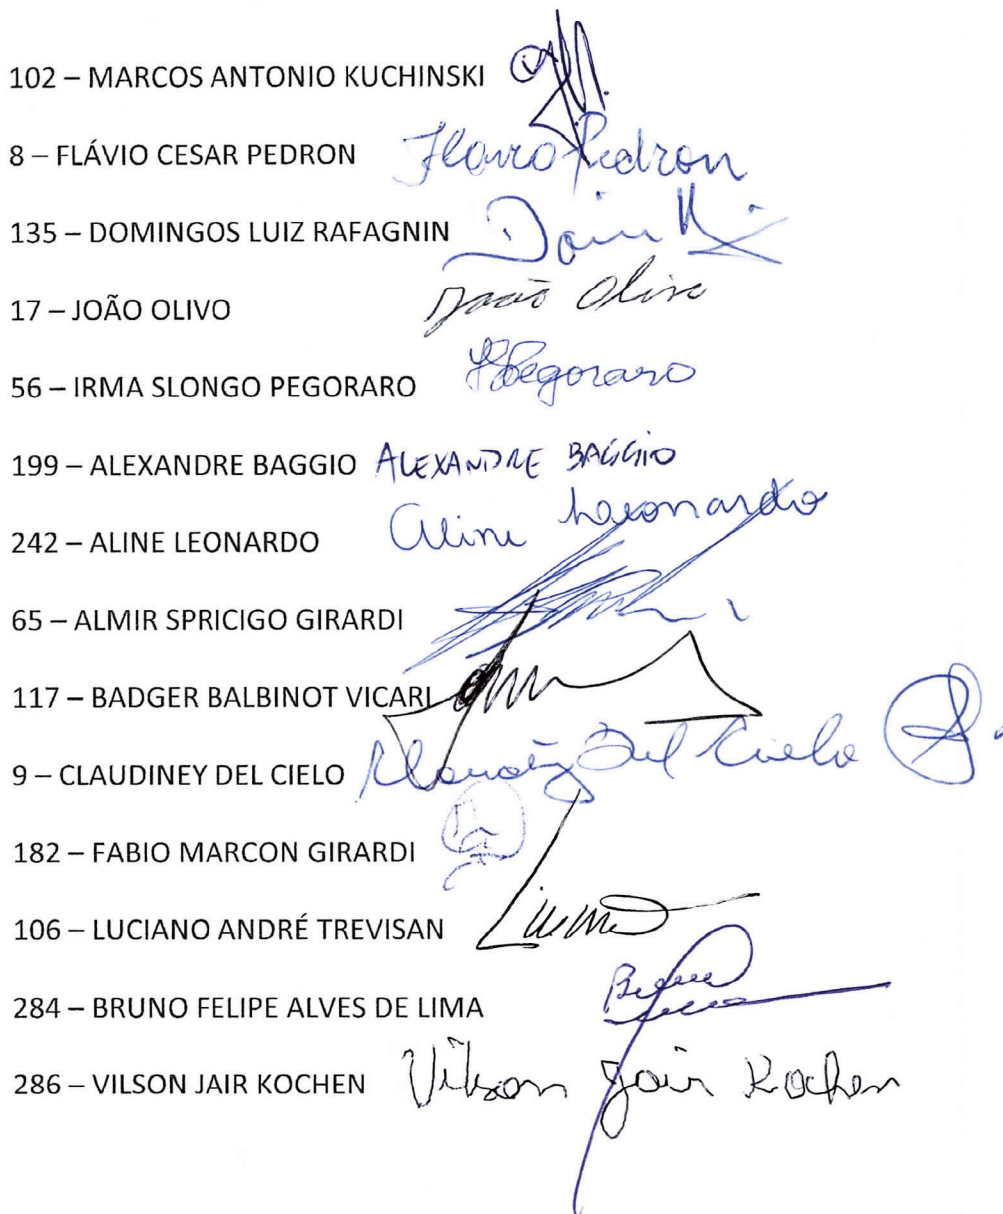 102 – MARCOS ANTONIO KUCHINSKI
8 – FLÁVIO CESAR PEDRON Flavio Pedron
135 – DOMINGOS LUIZ RAFAGNIN
17 – JOÃO OLIVO João Olivo
56 – IRMA SLONGO PEGORARO Pegoraro
199 – ALEXANDRE BAGGIO ALEXANDRE BAGGIO
242 – ALINE LEONARDO Aline Leonardo
65 – ALMIR SPRICIGO GIRARDI
117 – BADGER BALBINOT VICARI
9 – CLAUDINEY DEL CIELO Del Cielo
182 – FABIO MARCON GIRARDI
106 – LUCIANO ANDRÉ TREVISAN
284 – BRUNO FELIPE ALVES DE LIMA
286 – VILSON JAIR KOCHEN Vilson Jair Kochen